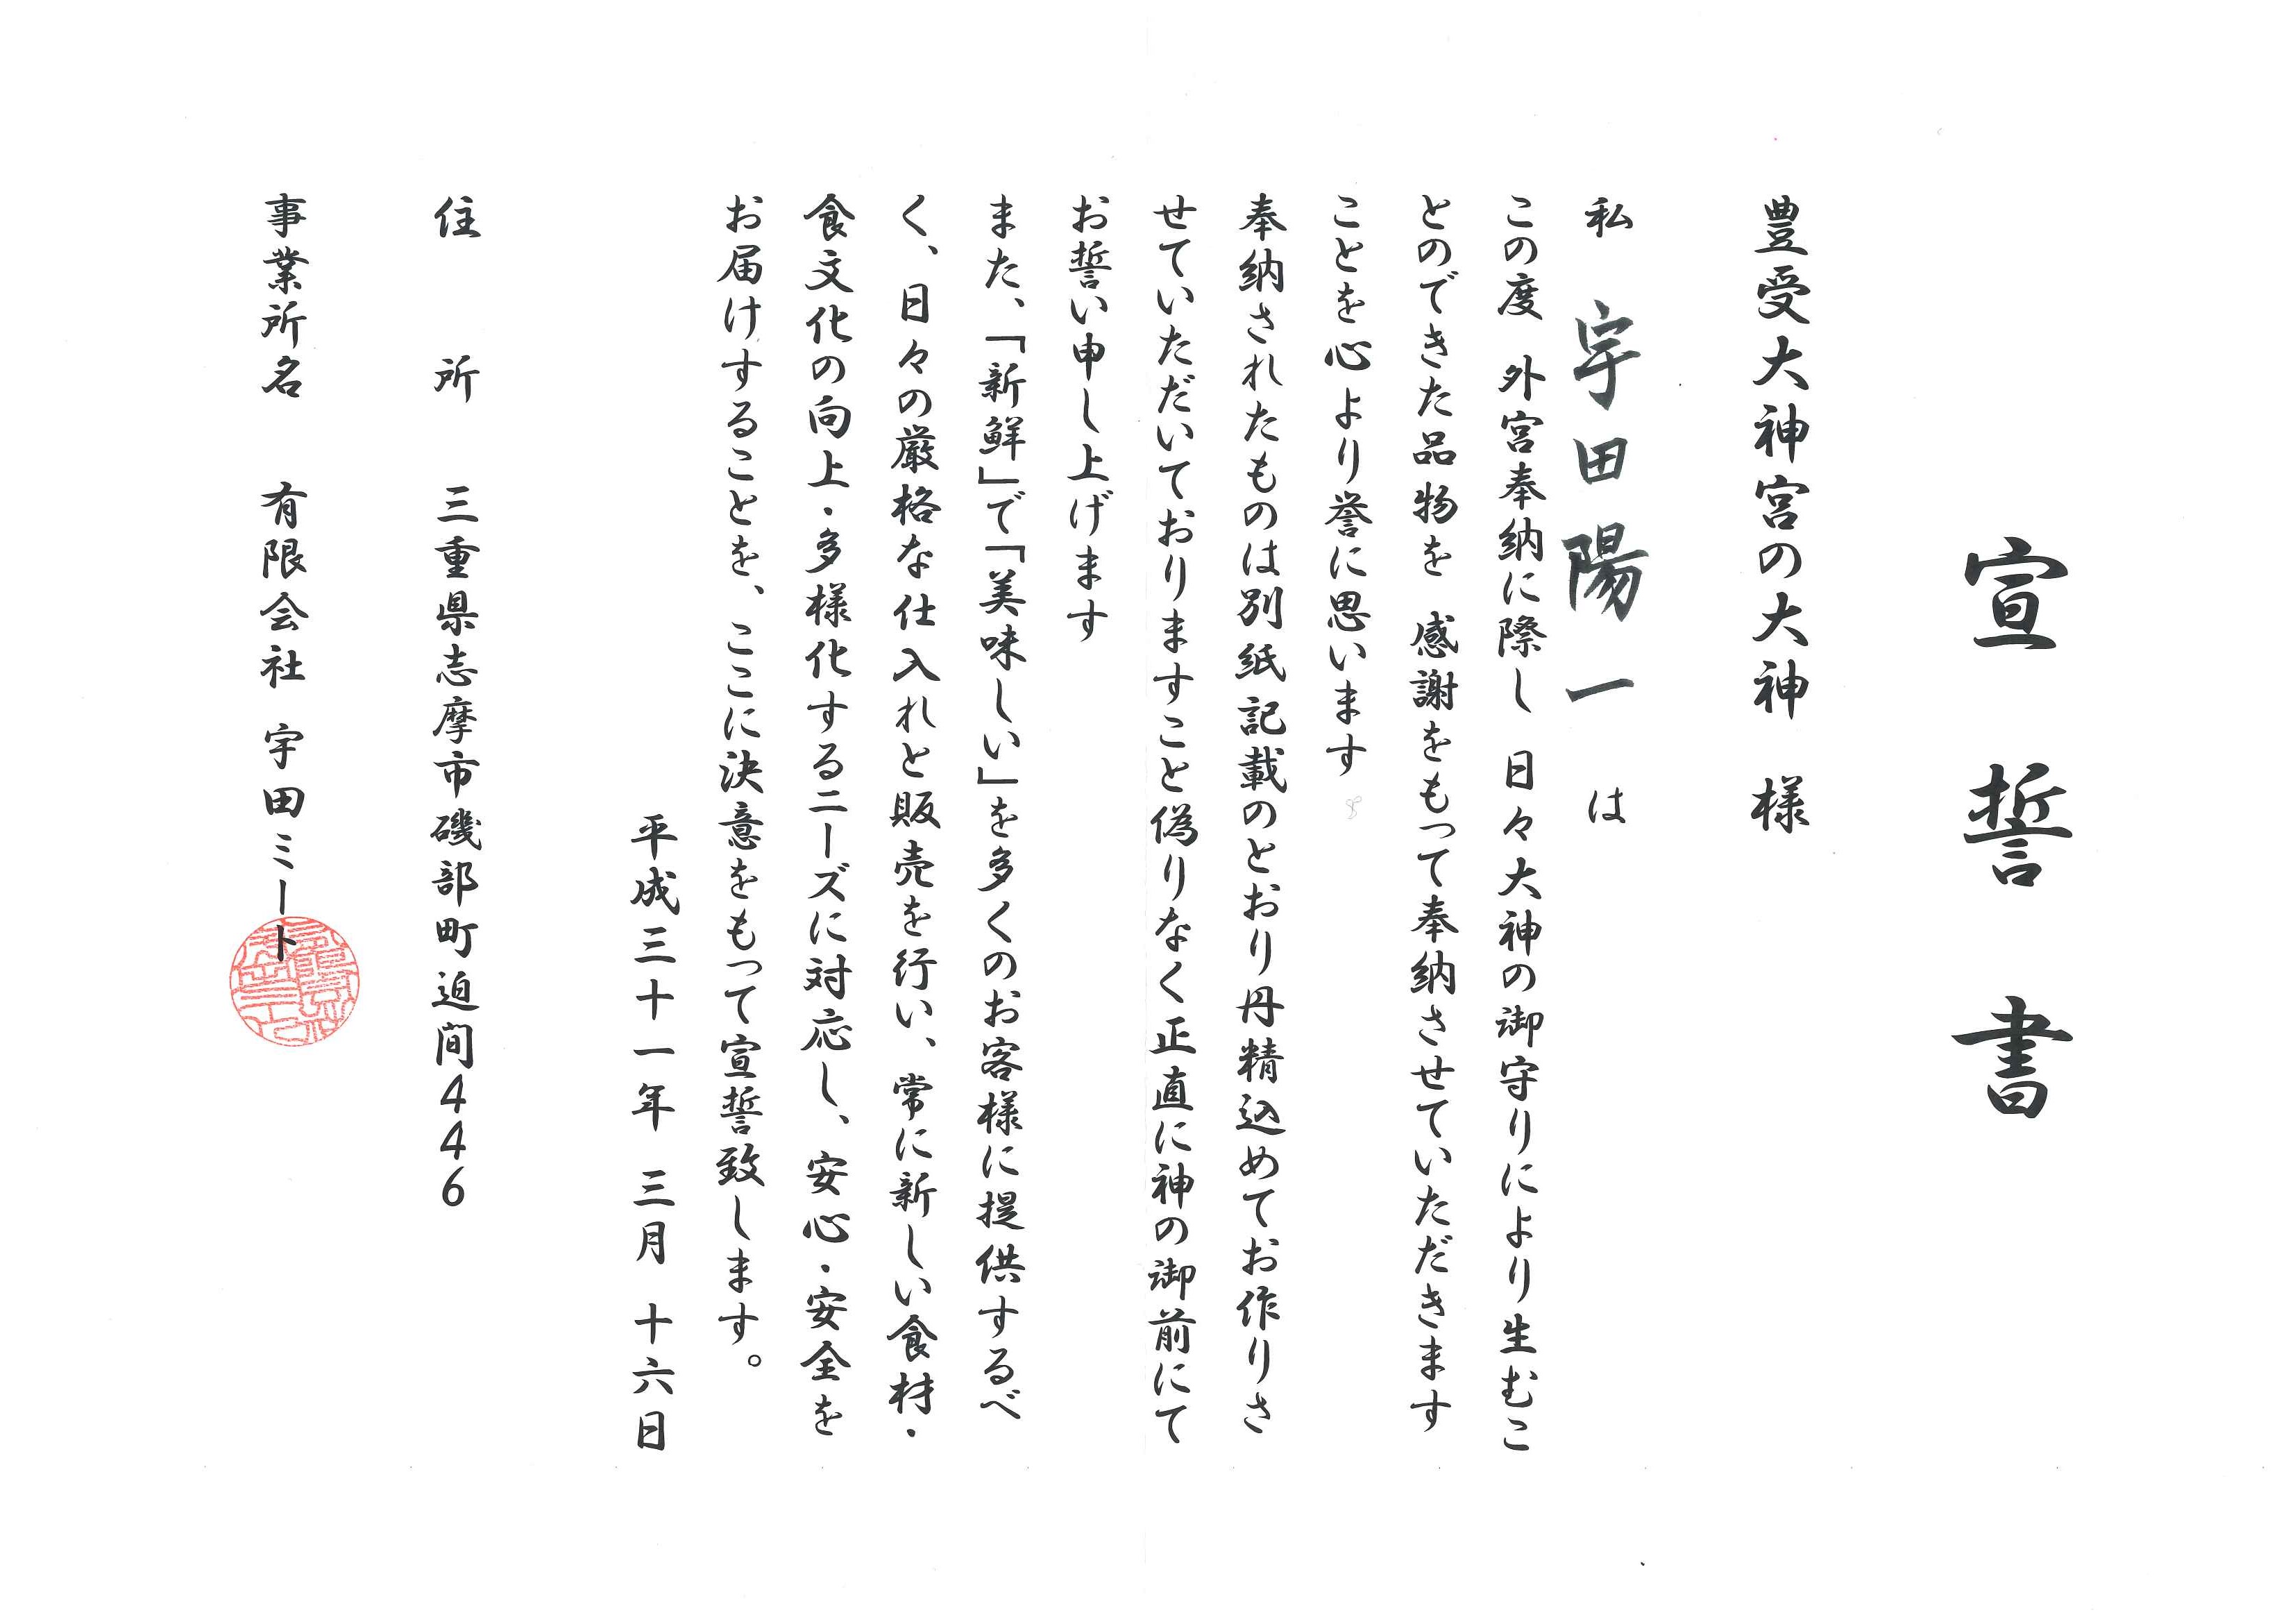 宣誓書
豊受大神宮の大神　様
私　宇田陽一　は
この度　外宮奉納に際し　日々大神の御守りにより生むこ
とのできた品物を　感謝をもって奉納させていただきます
ことを心より誉に思います
奉納されたものは別紙記載のとおり丹精込めてお作りさ
せていただいておりますこと偽りなく正直に神の御前にて
お誓い申し上げます
また、「新鮮」で「美味しい」を多くのお客様に提供するべ
く、日々の厳格な仕入れと販売を行い、常に新しい食材・
食文化の向上・多様化するニーズに対応し、安心・安全を
お届けすることを、ここに決意をもって宣誓致します。
平成三十一年　三月　十六日
住　　所　　三重県志摩市磯部町迫間４４６
事業所名　　有限会社　宇田ミート